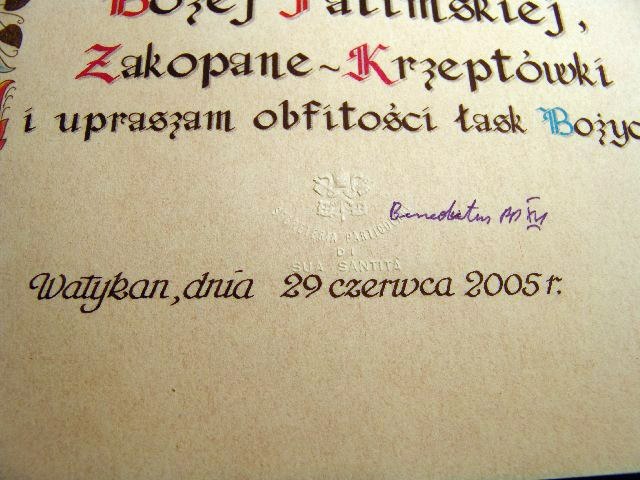 Bożej Fatimskiej,
Zakopane~Krzeptówki
i upraszam obfitości łask Bożyc
Benedictus PP XVI
SEGRETERIA PARTICOLARE
DI
SUA SANTITÀ
Watykan, dnia 29 czerwca 2005 r.